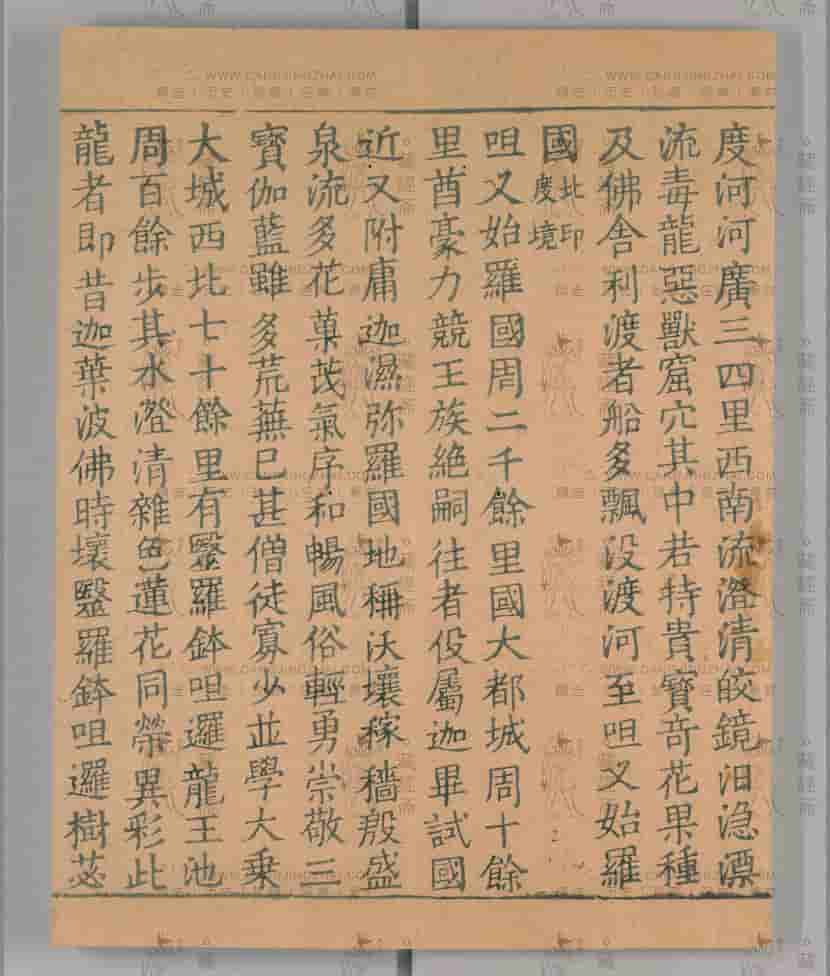 度河河廣三四里西南流澄清皎鏡汨淴漂
流毒龍惡獸窟穴其中若持貴寶奇花果種
及佛舍利渡者船多飄没渡河至呾叉始羅
國北印度境
呾叉始羅國周二千餘里國大都城周十餘
里酋豪力競王族絶嗣往者役屬迦畢試國
近又附庸迦濕弥羅國地稱沃壤稼穡殷盛
泉流多花菓茂氣序和暢風俗輕勇崇敬三
寶伽藍雖多荒蕪已甚僧徒寡少並學大乗
大城西北七十餘里有毉羅鉢呾邏龍王池
周百餘步其水澄清雜色蓮花同榮異彩此
龍者即昔迦葉波佛時壞毉羅鉢呾邏樹苾